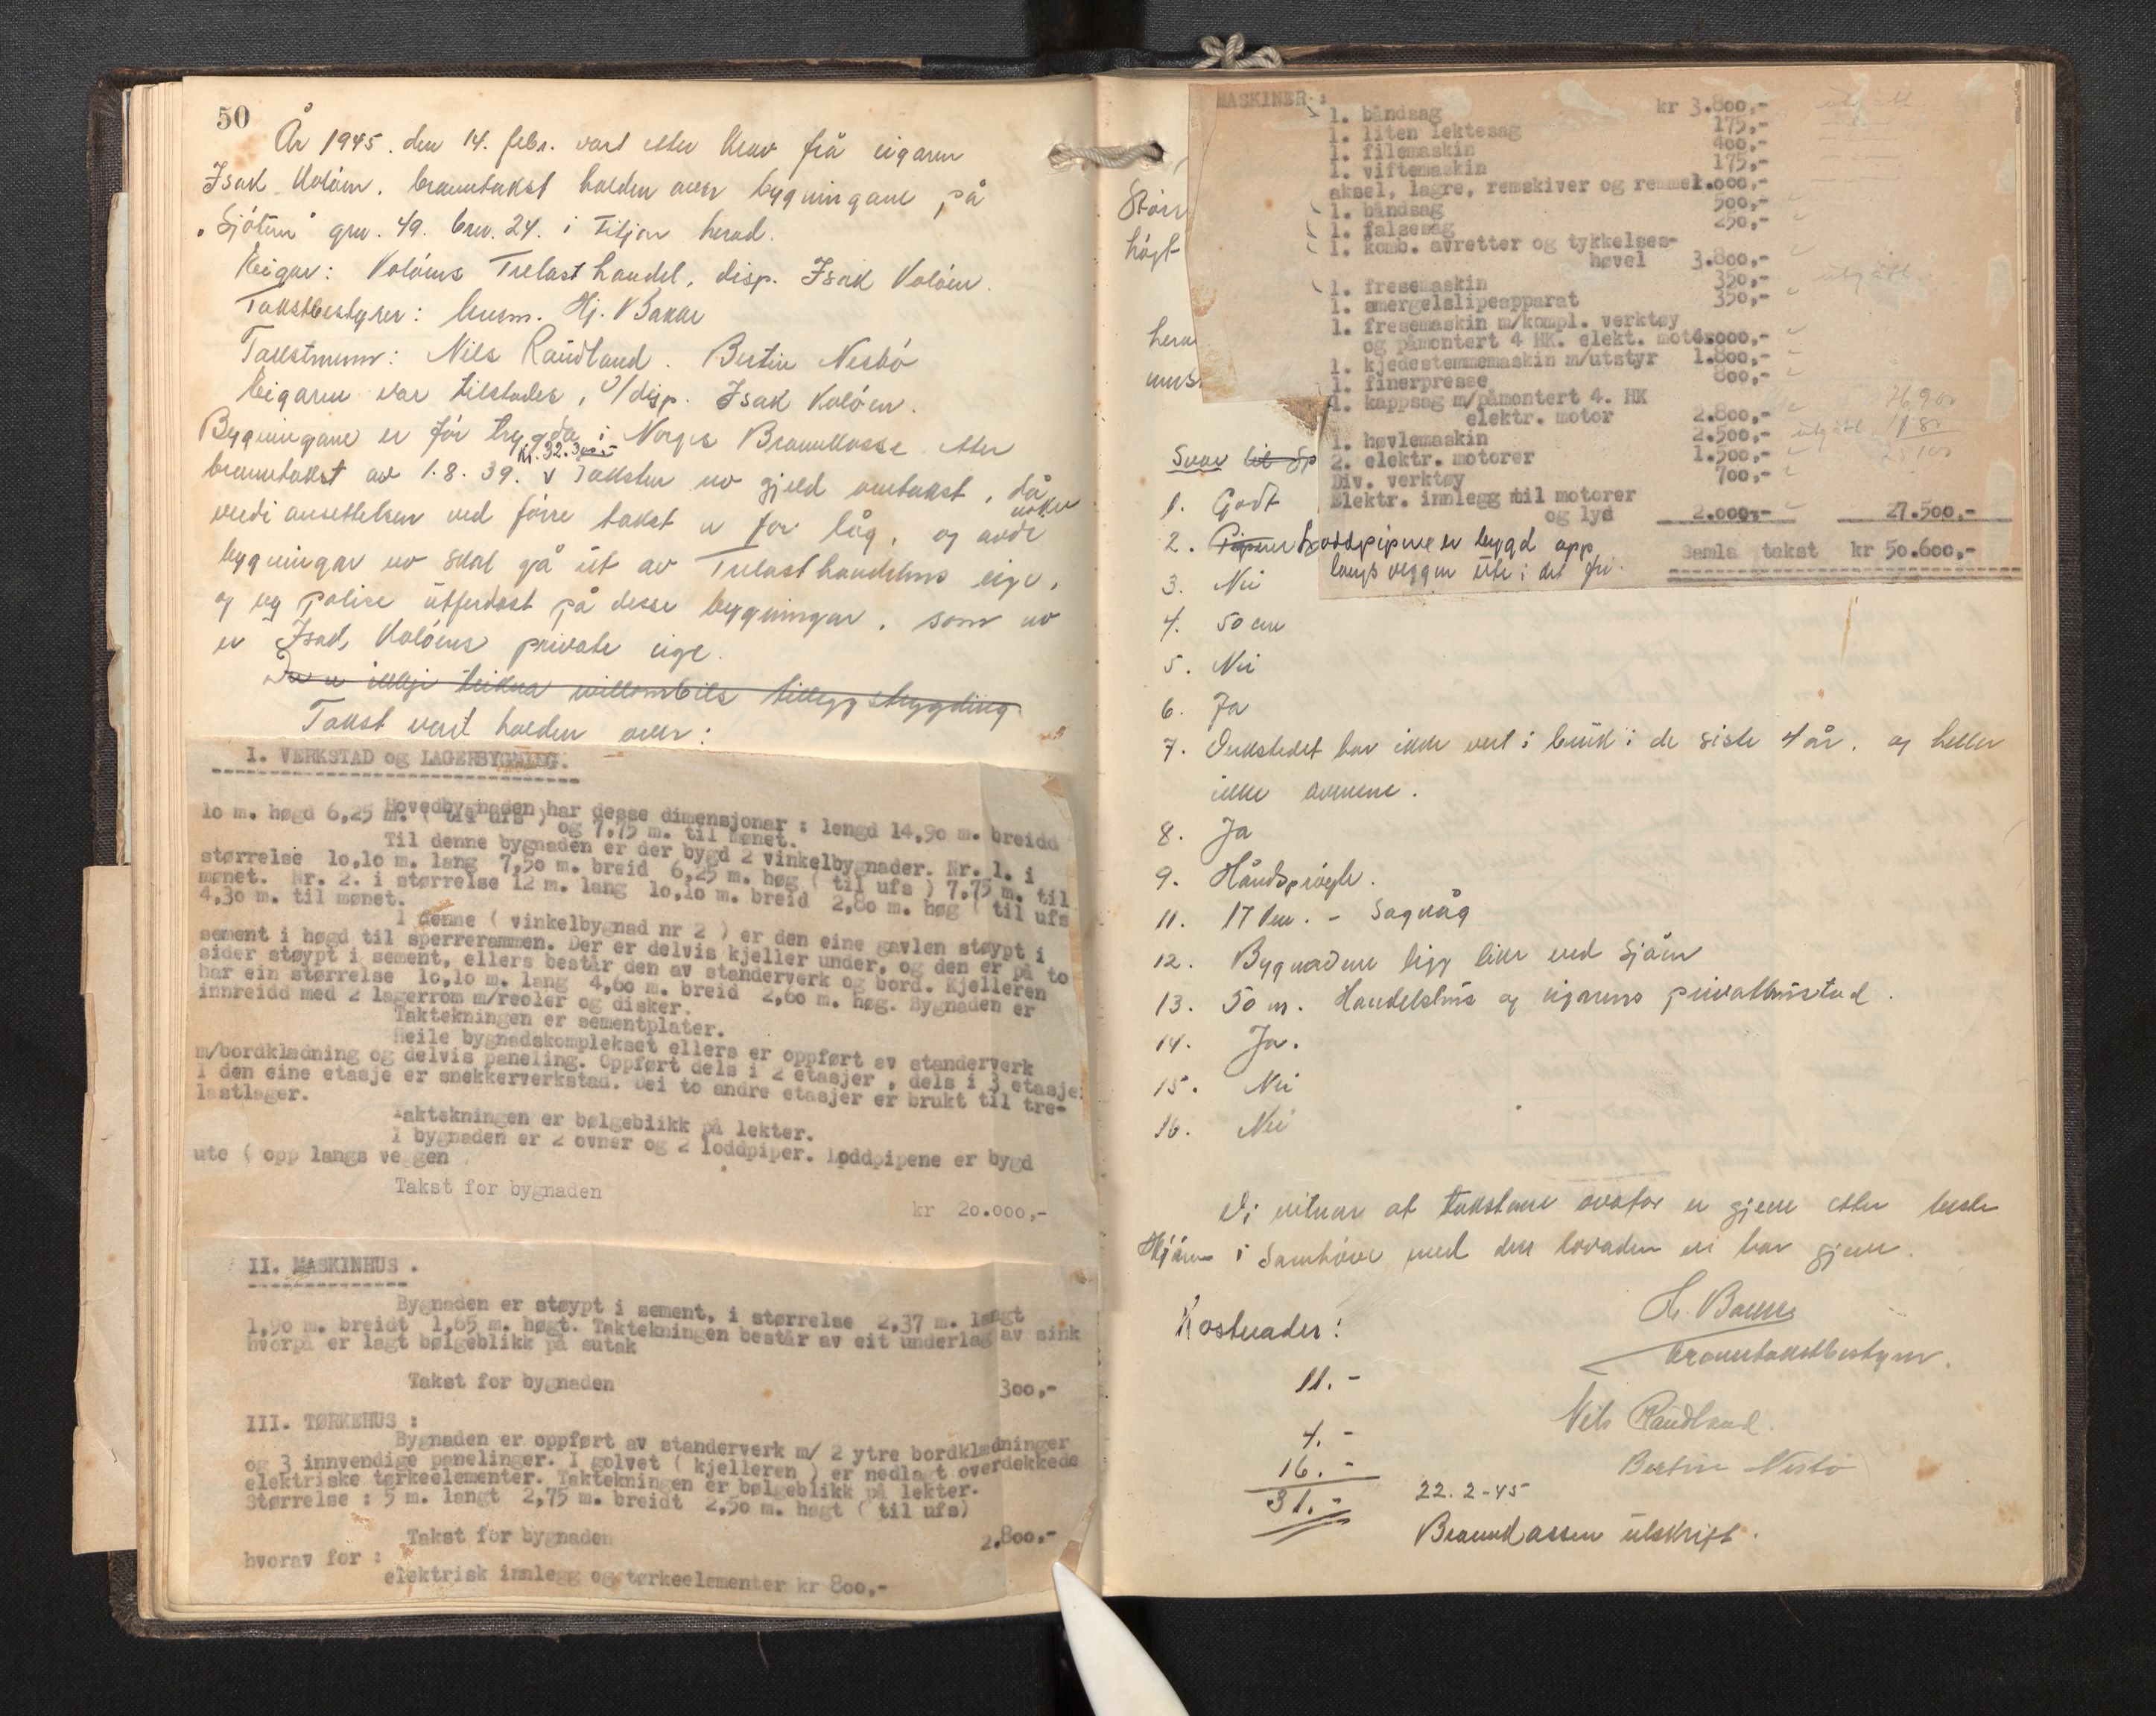 50
År 1945. den 14. febr. vart etter krav frå eigaren
Isak Koløen. branntakst halden over bygningane på
"Sjøtun" gnr. 49. bnr. 24. i Fitjar herad.
Eigar: Koløens Trelasthandel, disp. Isak Koløen.
Takstbestyrer: lensm. Hj. Bakke
Takstmenn: Nils Raudland. Bertin Nesbø
Eigaren var tilstades, v/disp. Isak Koløen.
Bygningane er før trygda i Norges Brannkasse etter
kr. 32.300,-
branntakst av 1.8.39. v Taksten no gjeld omtakst, då
verdiansettelsen ved førre takst er for låg, og andre
nokre
bygningar no skal gå ut av Trelasthandelens eige,
og ny polise utferdast på desse bygningar, som no
er Isak Koløens private eige.
Da er ikkje teikna tilleggstrygding
Takst vart halden over:
I. VERKSTAD og LAGERBYGNING.
Hovedbygnaden har desse dimensjonar : lengd 14,90 m. breidd
lo m. høgd 6,25 m. ( til ufs ) og 7,75 m. til mønet.
Til denne bygnaden er der bygd 2 vinkelbygnader. Nr. 1. i
størrelse lo,lo m. lang 7,50 m. breid 6,25 m. høg ( til ufs ) 7,75 m. til
mønet. Nr. 2. i størrelse 12 m. lang lo,lo m. breid 2,80 m. høg ( til ufs
4,30 m. til mønet.
I denne ( vinkelbygnad nr 2 ) er den eine gavlen støypt i
sement i høgd til sperrerammen. Der er delvis kjeller under, og den er på to
sider støypt i sement, ellers består den av standerverk og bord. Kjelleren
har ein størrelse lo,lo m. lang 4,60 m. breid 2,60 m. høg. Bygnaden er
innreidd med 2 lagerrom m/reoler og disker.
Taktekningen er sementplater.
Heile bygnadskomplekset ellers er oppført av standerverk
m/bordklædning og delvis paneling. Oppført dels i 2 etasjer , dels i 3 etasjer
I den eine etasje er snekkerverkstad. Dei to andre etasjer er brukt til tre-
lastlager.
Taktekningen er bølgeblikk på lekter.
I bygnaden er 2 ovner og 2 loddpiper. Loddpipene er bygd
ute ( opp langs veggen
Takst for bygnaden
kr 20.000,-
II. MASKINHUS .
Bygnaden er støypt i sement, i størrelse 2,37 m. langt
1,90 m. breidt 1,65 m. høgt. Taktekningen består av eit underlag av sink
hvorpå er lagt bølgeblikk på sutak
Takst for bygnaden 300,-
III. TØRKEHUS :
Bygnaden er oppført av standerverk m/ 2 ytre bordklædninger
og 3 innvendige panelinger. I golvet ( kjelleren ) er nedlagt overdekkede
elektriske tørkeelementer. Taktekningen er bølgeblikk på lekter.
Størrelse : 5 m. langt 2,75 m. breidt 2,50 m. høgt ( til ufs)
Takst for bygnaden 2.800,-
hvorav for :
elektrisk innlegg og tørkeelementer kr 800,-
MASKINER :
1. båndsag kr 3.800,- utgått
1. liten lektesag 175,-
1. filemaskin 400,-
1. viftemaskin 175,-
aksel, lagre, remskiver og remmer 1.000,-
1. båndsag 500,-
1. falsesag 250,-
1. komb. avretter og tykkelses-
høvel 3.800,-
1. fresemaskin 350,- utgått
1. smergelslipeapparat 350,-
1. fresemaskin m/kompl. verktøy
og påmontert 4 HK. elekt. motor .000,-
1. kjedestemmemaskin m/utstyr 1.800,-
1. finerpresse 800,-
1. kappsag m/påmontert 4. HK
elektr. motor 2.800,-
1. høvlemaskin 2.500,- utgått
2. elektr. motorer 1.500,-
Div. verktøy 700,-
Elektr. innlegg til motorer
og lys 2.000,- 27.500,-
Samla takst kr 50.600,-
Størr
høgt
hera
Svar til Sp
1. Godt
2. Pipene Loddpipene er bygd opp
langs veggen ute i det fri.
3. Nei
4. 50 cm
5. Nei
6. Ja
7. Verkstedet har ikke vert i bruk i de siste 4 år, og heller
ikke ovnene.
8. Ja
9. Håndsprøyte.
11. 17 km. - Sagvåg
12. Bygnadene ligg like ved sjøen
13. 50 m. Handelshus og eigarens privatbustad.
14. Ja.
15. Nei
16. Nei
Vi vitnar at takstane ovafor er gjeve etter beste
skjøn i samhøve med den lovnaden vi har gjeve.
H. Bakke
branntakstbestyrer.
Nils Raudland.
Bertin Nesbø
Kostnader:
11.-
4.-
16.-
31.-
22.2-45
Brannkassen utskrift.